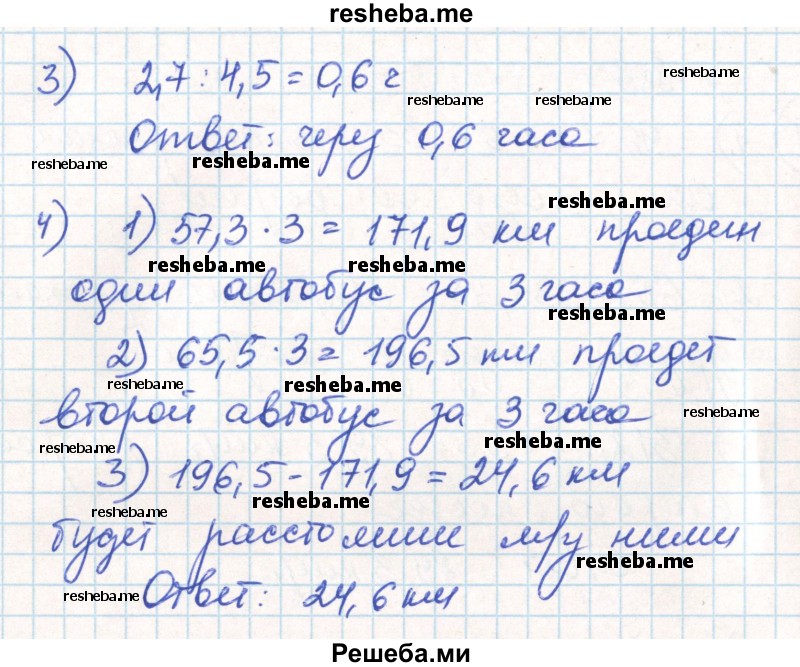 resheba.me
3) 2,7 : 4,5 = 0,6 ч
resheba.me
resheba.me resheba.me
Ответ: через 0,6 часа
resheba.me resheba.me
resheba.me
4) 1) 57,3 · 3 = 171,9 км проедет
resheba.me resheba.me
один автобус за 3 часа
resheba.me
2) 65,5 · 3 = 196,5 км проедет
resheba.me resheba.me
второй автобус за 3 часа
resheba.me
resheba.me resheba.me
3) 196,5 - 171,9 = 24,6 км
resheba.me resheba.me
будет расстояние м/у ними
resheba.me
resheba.me Ответ: 24,6 км
Решеба.ми